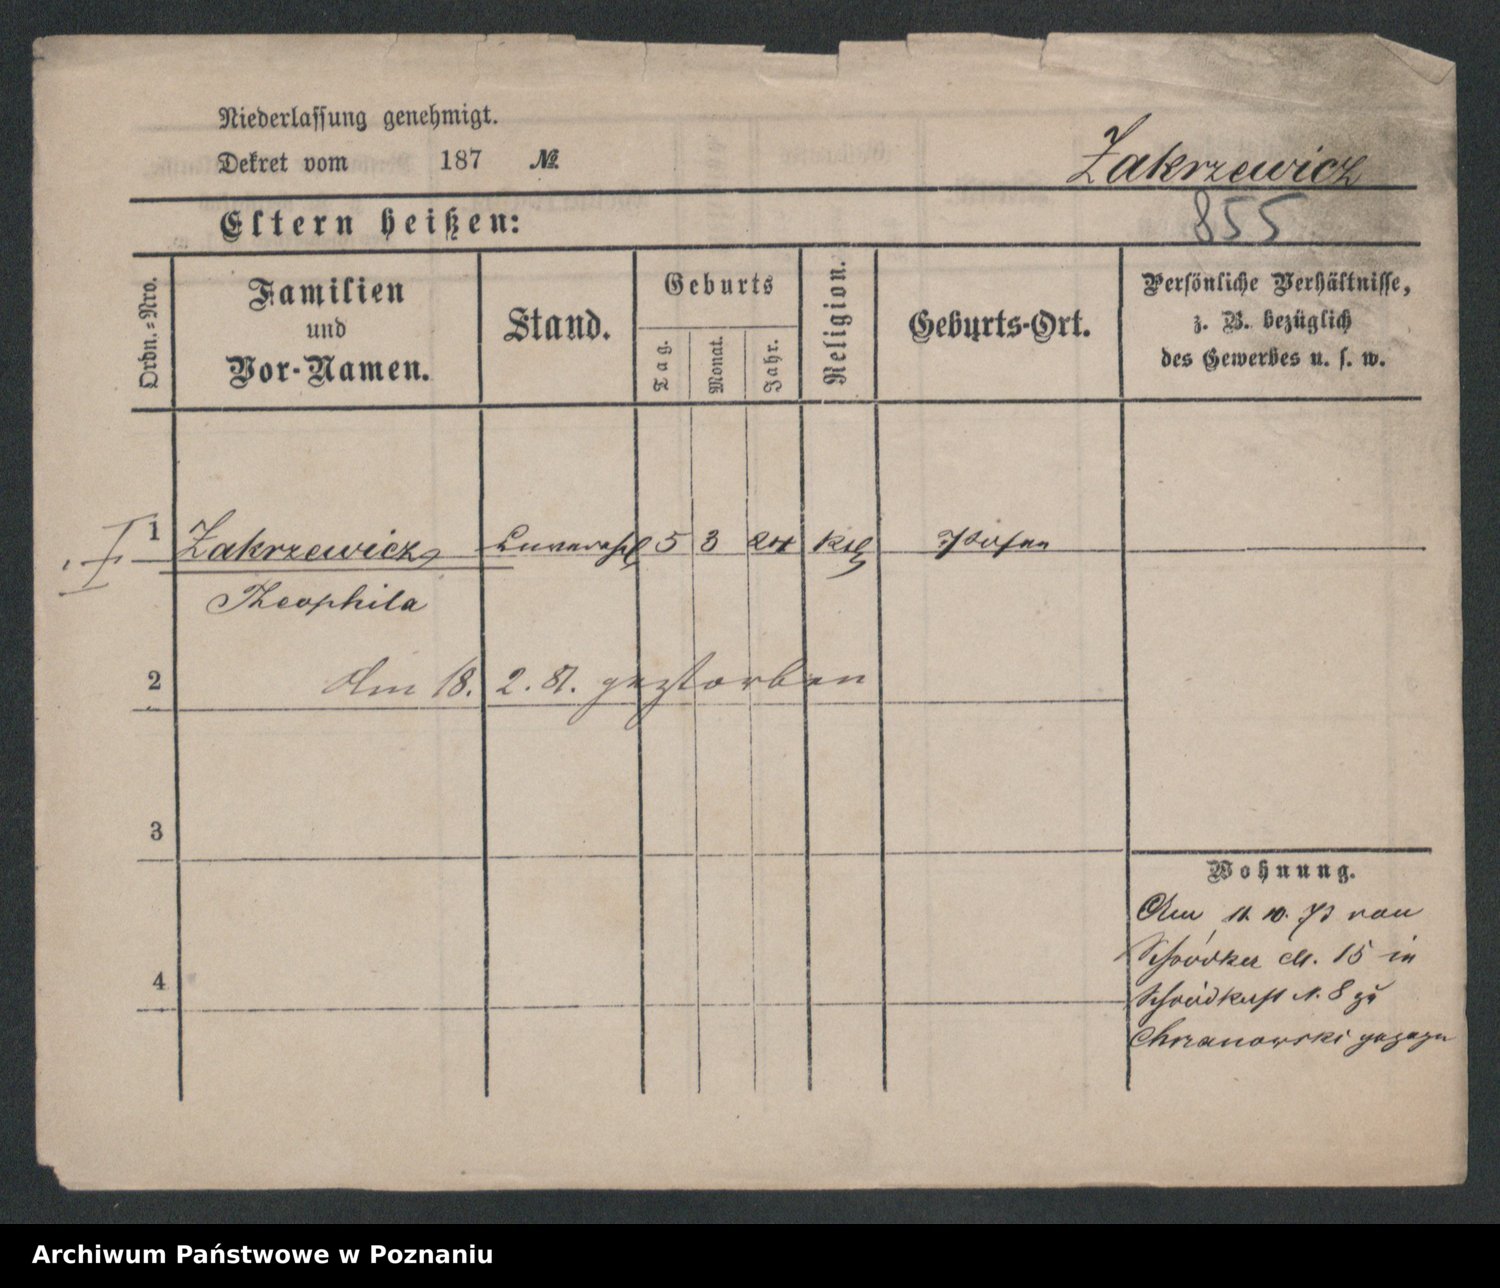 Niederlassung genehmigt.
Dekret vom 187 №
Zakrzewicz
855
Eltern heißen:
Ordn.-Nro.
Familien
und
Vor-Namen.
Stand.
Geburts
Tag.
Monat.
Jahr.
Religion.
Geburts-Ort.
Persönliche Verhältnisse,
z. B. bezüglich
des Gewerbes u. s. w.
I
1 Zakrzewicz unverehl 5 3 24 kth Posen
Theophila
2 Am 18. 2. 81. gestorben
3
4
Wohnung.
Am 11. 10. 73 von
Schrodker M. 15 in
N. 8 zu
Chrzanowski gezogen
Archiwum Państwowe w Poznaniu